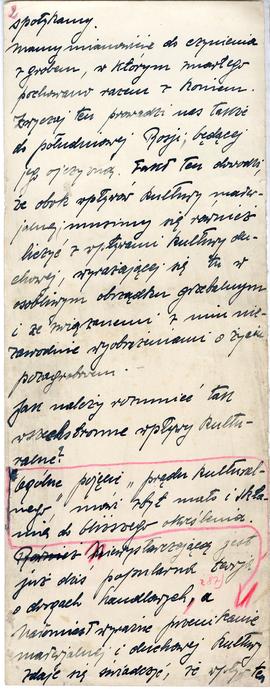 2
spotykamy.
Mamy mianowicie do czynienia
z grobem, w którym zmarłego
pochowano razem z koniem.
Zwyczaj ten prowadzi nas także
do południowej Rosji, będącej
jego ojczyzną. Fakt ten dowodzi,
że obok wpływów kultury mater-
jalnej, musimy się również
liczyć z wpływami kultury du-
chowej, wyrażającej się tu w
osobliwym obrządku grzebalnym
i ze związanemi z nim nie-
zawodnie wyobrażeniami o życiu
pozagrobowem.
Jak należy rozumieć tak
wszechstronne wpływy kultu-
ralne?
Ogólne pojęcie "prądu kultural-
nego" mówi zbyt mało i skła-
nia do bliższego określenia.
Również niewystarczającą jest
już dziś popularna
o drogach handlowych, a
natomiast wyraźne przenikanie
materjalnej i duchowej kultury
zdaje się świadczyć, że wpływ ten